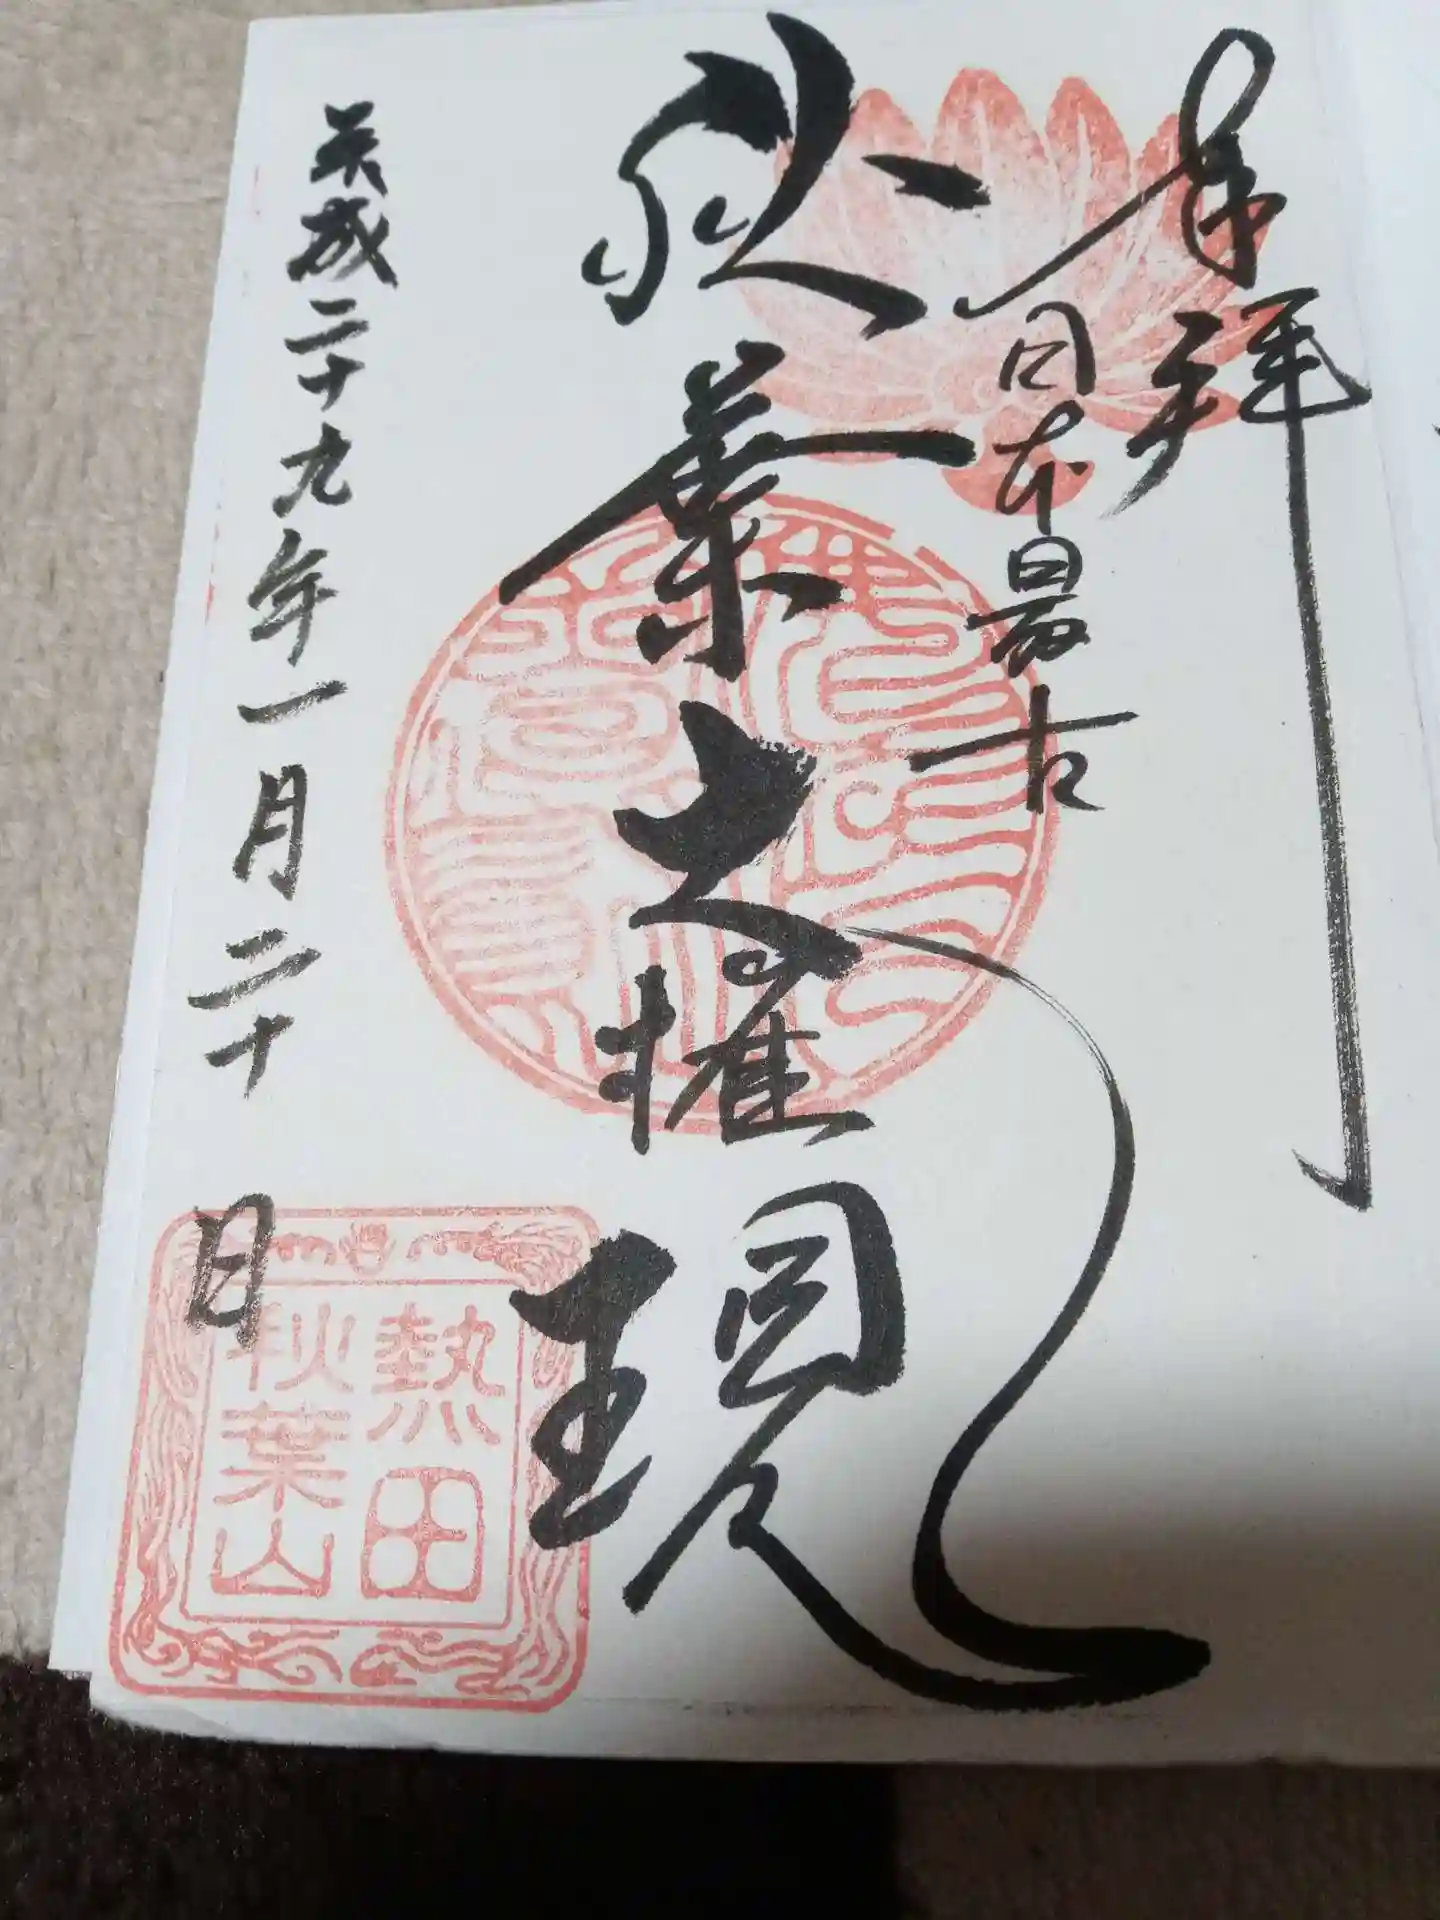 奉拝
日本最古
秋葉大権現
平成二十九年一月二十日
熱田
秋葉山